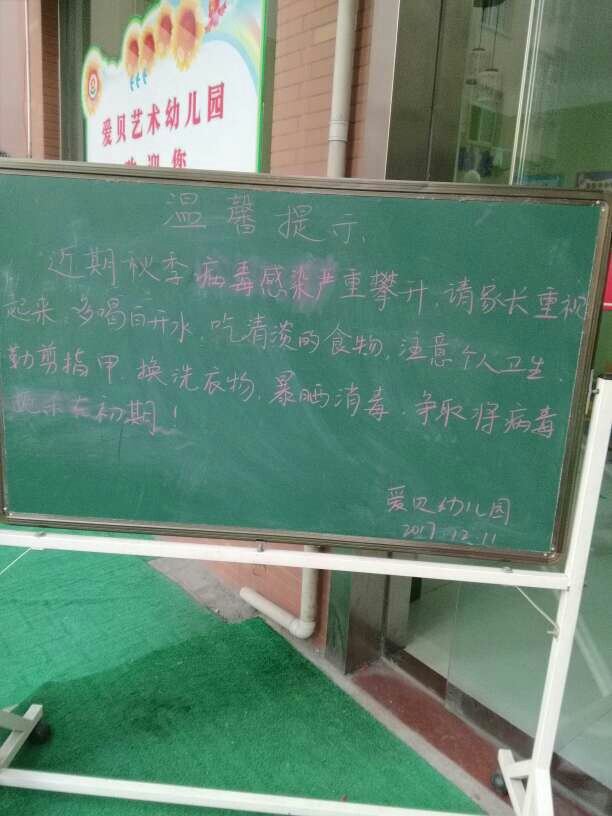 爱贝艺术幼儿园
欢迎您
温馨提示
近期秋季病毒感染严重攀升,请家长重视
起来,多喝白开水,吃清淡的食物,注意个人卫生,
勤剪指甲,换洗衣物,暴晒消毒,争取将病毒
在初期!
爱贝幼儿园
2017.12.11